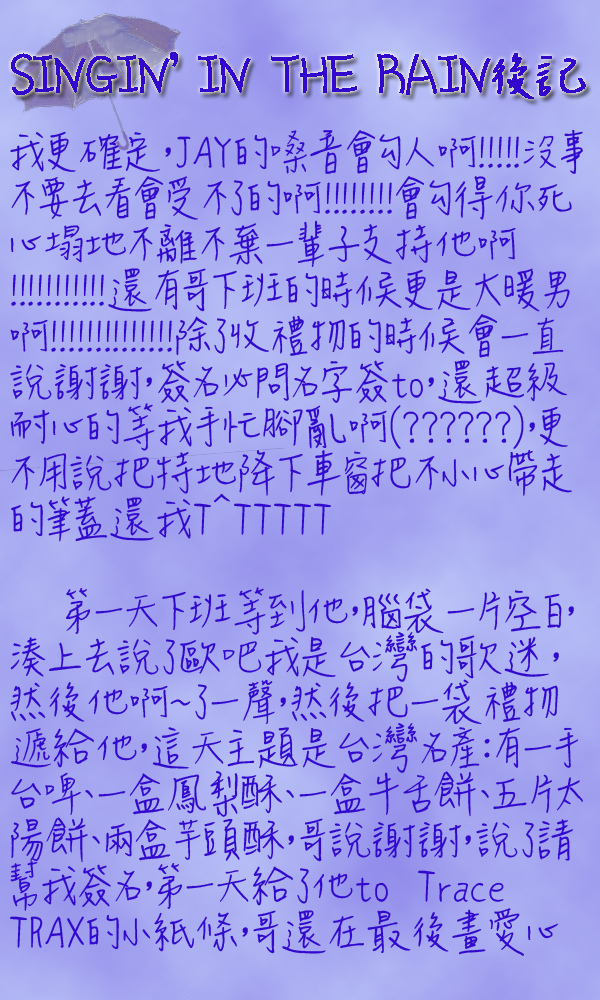 SINGIN' IN THE RAIN後記
我更確定,JAY的嗓音會勾人啊!!!!!沒事
不要去看會受不了的啊!!!!!!!!會勾得你死
心塌地不離不棄一輩子支持他啊
!!!!!!!!!!!還有哥下班的時候更是大暖男
啊!!!!!!!!!!!!!!除了收禮物的時候會一直
說謝謝,簽名必問名字簽to,還超級
耐心的等我手忙腳亂啊(??????),更
不用說把特地降下車窗把不小心帶走
的筆蓋還我T^TTTTT
第一天下班等到他,腦袋一片空白,
湊上去說了歐吧我是台灣的歌迷,
然後他啊~了一聲,然後把一袋禮物
遞給他,這天主題是台灣名產:有一手
台啤、一盒鳳梨酥、一盒牛舌餅、五片太
陽餅、兩盒芋頭酥,哥說謝謝,說了請
幫我簽名,第一天給了他to Trace
TRAX的小紙條,哥還在最後畫愛心